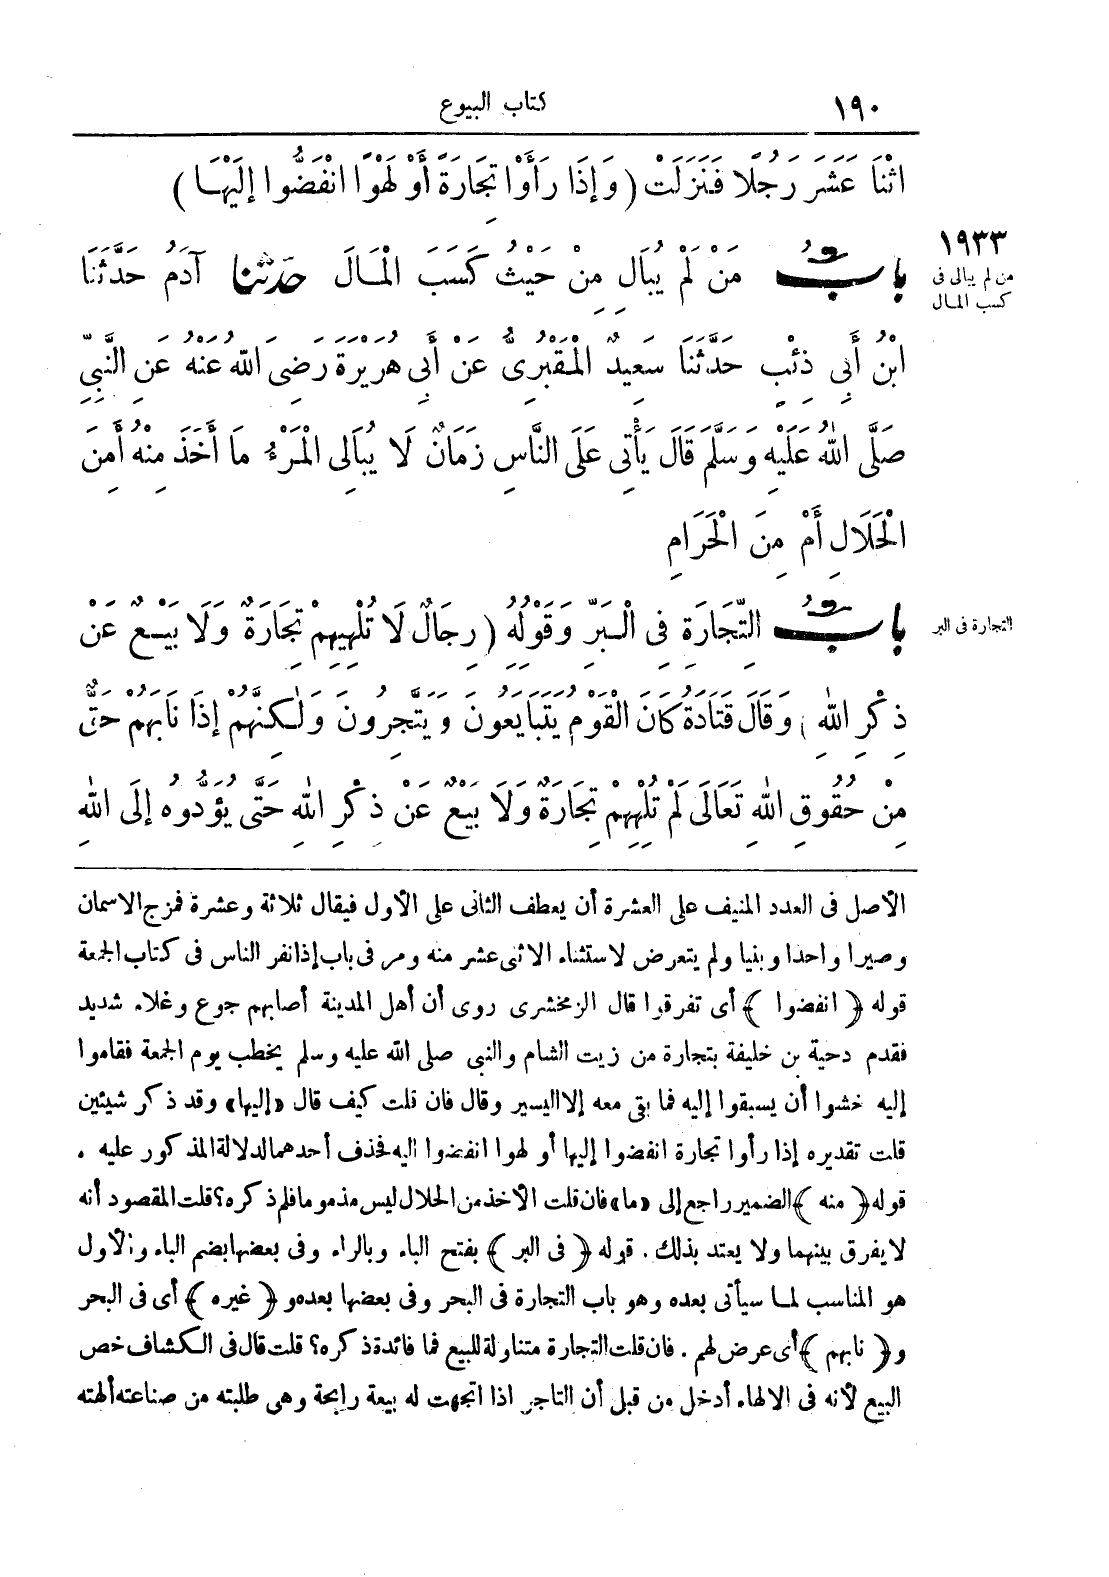 ١٩٠ كتاب البيوع
اثْنَا عَشَرَ رَجُلًا فَنَزَلَتْ (وَإِذَا رَأَوْا تِجَارَةً أَوْ لَهْوًا انْفَضُّوا إِلَيْهَا)
١٩٣٣
من لم يبالى فى
كسب المال
بابٌ مَنْ لَمْ يُبَالِ مِنْ حَيْثُ كَسَبَ الْمَالَ حدثنا آدَمُ حَدَّثَنَا
ابْنُ أَبِى ذِئْبٍ حَدَّثَنَا سَعِيدٌ الْمَقْبُرِىُّ عَنْ أَبِى هُرَيْرَةَ رَضِىَ اللهُ عَنْهُ عَنِ النَّبِىِّ
صَلَّى اللهُ عَلَيْهِ وَسَلَّمَ قَالَ يَأْتِى عَلَى النَّاسِ زَمَانٌ لَا يُبَالِى الْمَرْءُ مَا أَخَذَ مِنْهُ أَمِنَ
الْحَلَالِ أَمْ مِنَ الْحَرَامِ
التجارة فى البر
بابُ التِّجَارَةِ فِى الْبَرِّ وَقَوْلُهُ (رِجَالٌ لَا تُلْهِيهِمْ تِجَارَةٌ وَلَا بَيْعٌ عَنْ
ذِكْرِ اللهِ) وَقَالَ قَتَادَةُ كَانَ الْقَوْمُ يَتَبَايَعُونَ وَيَتَّجِرُونَ وَلٰكِنَّهُمْ إِذَا نَابَهُمْ حَقٌّ
مِنْ حُقُوقِ اللهِ تَعَالَى لَمْ تُلْهِهِمْ تِجَارَةٌ وَلَا بَيْعٌ عَنْ ذِكْرِ اللهِ حَتَّى يُؤَدُّوهُ إِلَى اللهِ
الأصل فى العدد المنيف على العشرة أن يعطف الثانى على الأول فيقال ثلاثة وعشرة فمزج الاسمان
وصيرا واحدا وبنيا ولم يتعرض لاستثناء الاثنى عشر منه ومر فى باب إذا نفر الناس فى كتاب الجمعة
قوله ﴿انفضوا﴾ أى تفرقوا قال الزمخشرى روى أن أهل المدينة أصابهم جوع وغلاء شديد
فقدم دحية بن خليفة بتجارة من زيت الشام والنبى صلى الله عليه وسلم يخطب يوم الجمعة فقاموا
إليه خشوا أن يسبقوا إليه فما بقى معه إلا اليسير وقال فان قلت كيف قال «إليها» وقد ذكر شيئين
قلت تقديره إذا رأوا تجارة انفضوا إليها أو لهوا انفضوا اليه فحذف أحدهما لدلالة المذكور عليه .
قوله ﴿منه﴾ الضمير راجع إلى «ما» فان قلت الأخذ من الحلال ليس مذموما فلم ذكره؟ قلت المقصود أنه
لا يفرق بينهما ولا يعتد بذلك . قوله ﴿فى البر﴾ بفتح الباء وبالراء وفى بعضها بضم الباء والأول
هو المناسب لما سيأتى بعده وهو باب التجارة فى البحر وفى بعضها بعده و﴿غيره﴾ أى فى البحر
و﴿نابهم﴾ أى عرض لهم . فان قلت التجارة متناولة للبيع فما فائدة ذكره؟ قلت قال فى الكشاف خص
البيع لأنه فى الالهاء أدخل من قبل أن التاجر اذا اتجهت له بيعة رابحة وهى طلبته من صناعته ألهته